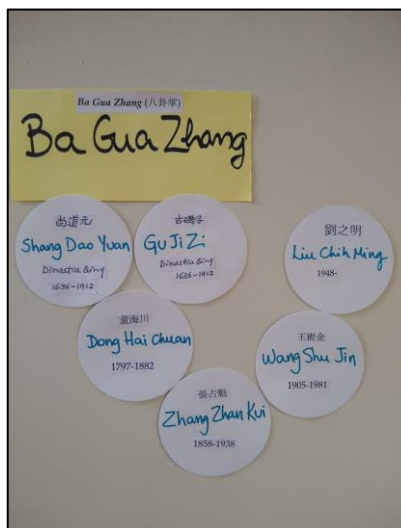 Ba Gua Zhang (八卦掌)
Ba Gua Zhang
尚道元
Shang Dao Yuan
Dinastia Qing
1636-1912
古磯子
Gu Ji Zi
Dinastia Qing
1636-1912
劉之明
Liu Chih Ming
1948-
董海川
Dong Hai Chuan
1797-1882
王樹金
Wang Shu Jin
1905-1981
張占魁
Zhang Zhan Kui
1858-1938